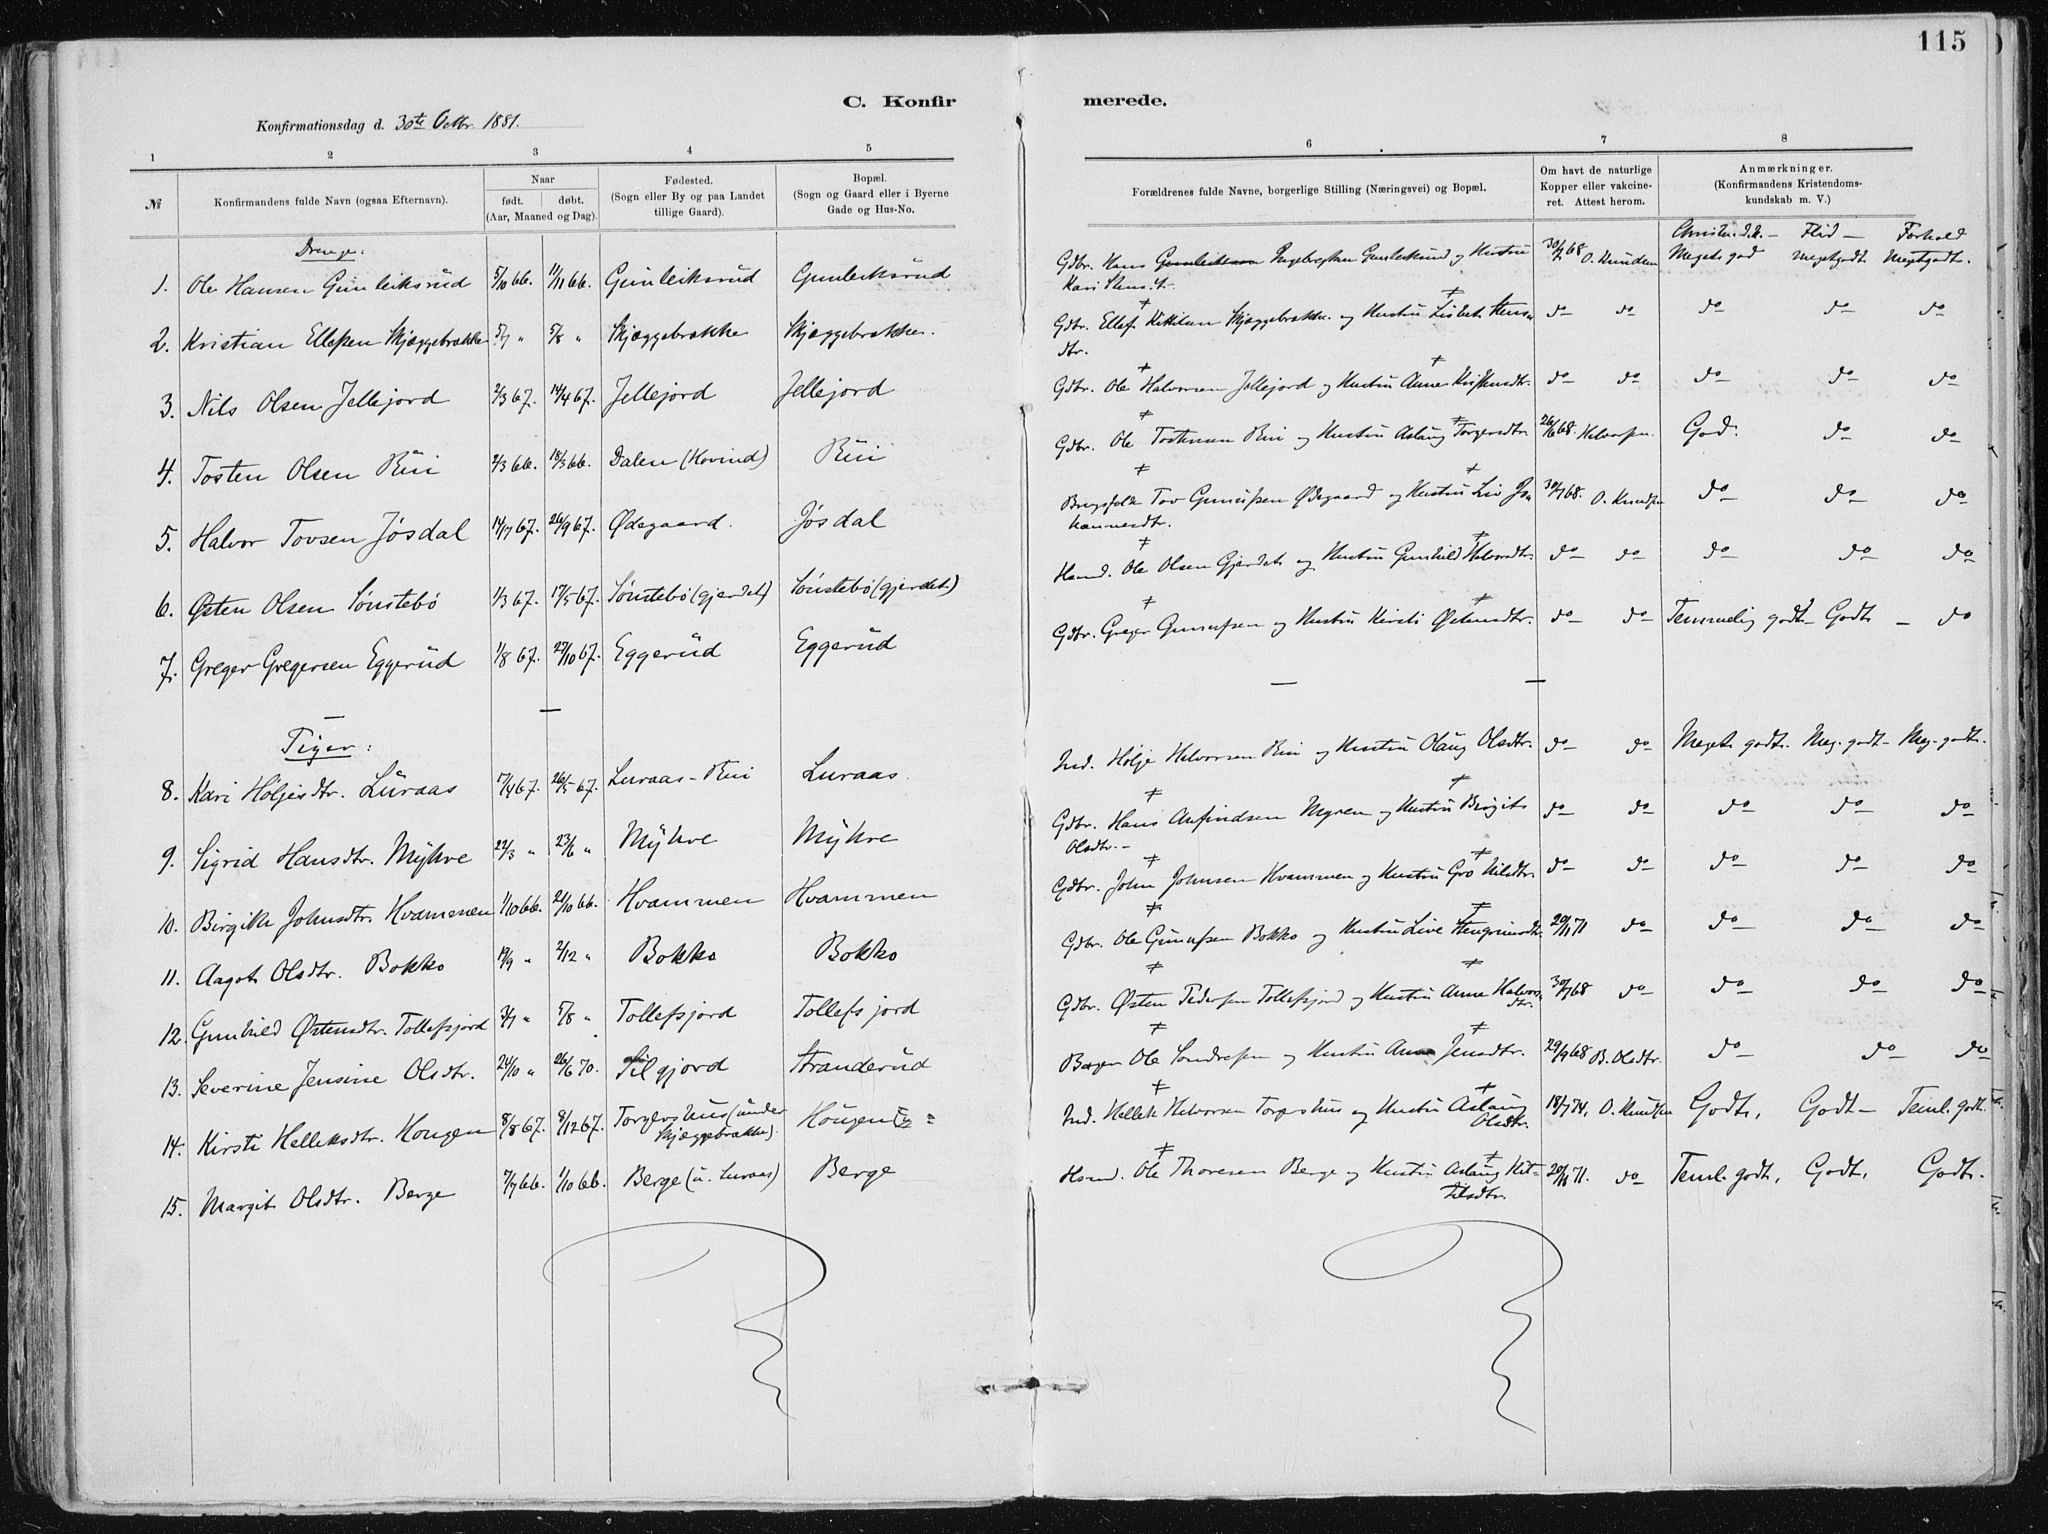 115
C. Konfirmerede.
Konfirmationsdag d. 30te Octbr. 1881.
1 2 3 4 5 6 7 8
№
Konfirmandens fulde Navn (ogsaa Efternavn).
Naar
født. døbt.
(Aar, Maaned og Dag).
Fødested.
(Sogn eller By og paa Landet
tillige Gaard).
Bopæl.
(Sogn og Gaard eller i Byerne
Gade og Hus-No.
Forældrenes fulde Navne, borgerlige Stilling (Næringsvei) og Bopæl.
Om havt de naturlige
Kopper eller vakcine-
ret. Attest herom.
Anmærkninger.
(Konfirmandens Kristendoms-
kundskab m. V.)
Drenge: Flid – Forhold
1. Ole Hansen Gunleiksrud 5/10 66. 11/11 66. Gunleiksrud Gunleiksrud Gdbr. Hans Gunleiksrud og Hustru 30/7 68 O. Knudsen Meget god meget godt Meget godt.
2. Kristian Ellefsen Skjæggebrække 5/7 " 5/8 " Skjæggebrække Skjæggebrække. Gdbr. Ellef Kittilsen Skjæggebrække og Hustru Lisbet do do do do do
dtr.
3. Nils Olsen Jellejord 2/3 67. 14/4 67. Jellejord Jellejord Gdbr. Ole Halvorsen Jellejord og Hustru Anne do do do do do
4. Tosten Olsen Rui 2/3 66. 18/3 66. Dalen (Hovind) Rui Gdbr. Ole Tostensen Rui og Hustru Aslaug Torgersdtr. 26/6 68. Halvorsen. God. do do
5. Halvor Tovsen Jøsdal 14/7 67. 26/9 67. Ødegaard. Jøsdal Brugsfolk Tov Gunnufsen Ødegaard og Hustru Liv Jo- 30/7 68. O. Knudsen do do do
hannesdtr.
6. Østen Olsen Sønstebø 1/3 67. 17/5 67. Sønstebø (gjerdet) Sønstebø (gjerdet) Husmd. Ole Olsen Gjerdet og Hustru Gunhild Halvorsdtr. do do do do do
7. Greger Gregersen Eggerud 1/8 67. 27/10 67. Eggerud Eggerud Gdbr. Greger Gunnufsen og Hustru Kirsti Østensdtr. do do Temmelig godt – Godt – do
Piger:
8. Kari Høljesdtr. Luraas 17/4 67. 26/5 67. Luraas-Rui Luraas. Ind. Hølje Halvorsen Rui og Hustru Olaug Olsdtr. do do Meget godt. Meg. godt – Meg. godt.
9. Sigrid Hansdtr. Myhre 22/3 " 23/6 " Myhre Myhre Gdbr. Hans Myren og Hustru Birgit do do do do do
Olsdtr. –
10. Birgitha Johnsdtr. Hvammen 1/10 66. 21/10 66. Hvammen Hvammen Gdbr. John Johnsen Hvammen og Hustru Gro Nilsdtr. do do do do do
11. Aagot Olsdtr. Bokko 19/9 " 2/12 " Bokko Bokko Gdbr. Ole Gunnufsen Bokko og Hustru Live 20/11 71 do do do do
12. Gunhild Østensdtr. Tollefsjord 3/7 " 5/8 " Tollefsjord Tollefsjord Gdbr. Østen Pedersen Tollefsjord og Hustru Anne Halvors- 30/7 68 do do do do
dtr.
13. Severine Jensine Olsdtr. 24/10 " 26/6 70. Siljord Stranderud Ole Sondresen og Hustru Anne Jensdtr. 29/9 68 B. Olsdtr. do do do
14. Kirsti Helleksdtr. Hougen 8/8 67. 8/12 67. Torgershus (under Hougen Ind. Hellek Halvorsen og Hustru Aslaug 18/7 74. O. Knudsen Godt, Godt – Teml. godt.
Skjæggebrække). Olsdtr.
15. Margit Olsdtr. Berge 7/7 66. 1/10 66. Berge (u. Luraas) Berge Husmd. Ole Thoresen Berge og Hustru Aslaug Kit- 20/11 71. do Teml. godt, Godt, Godt.
tilsdtr.